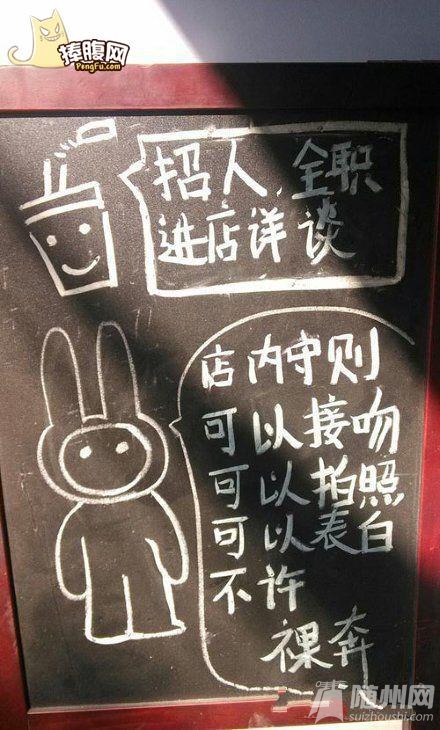 捧腹网
PengFu.com
招人,全职
进店详谈
店内守则
可以接吻
可以拍照
可以表白
不许
裸奔
随州网
suizhoushi.com